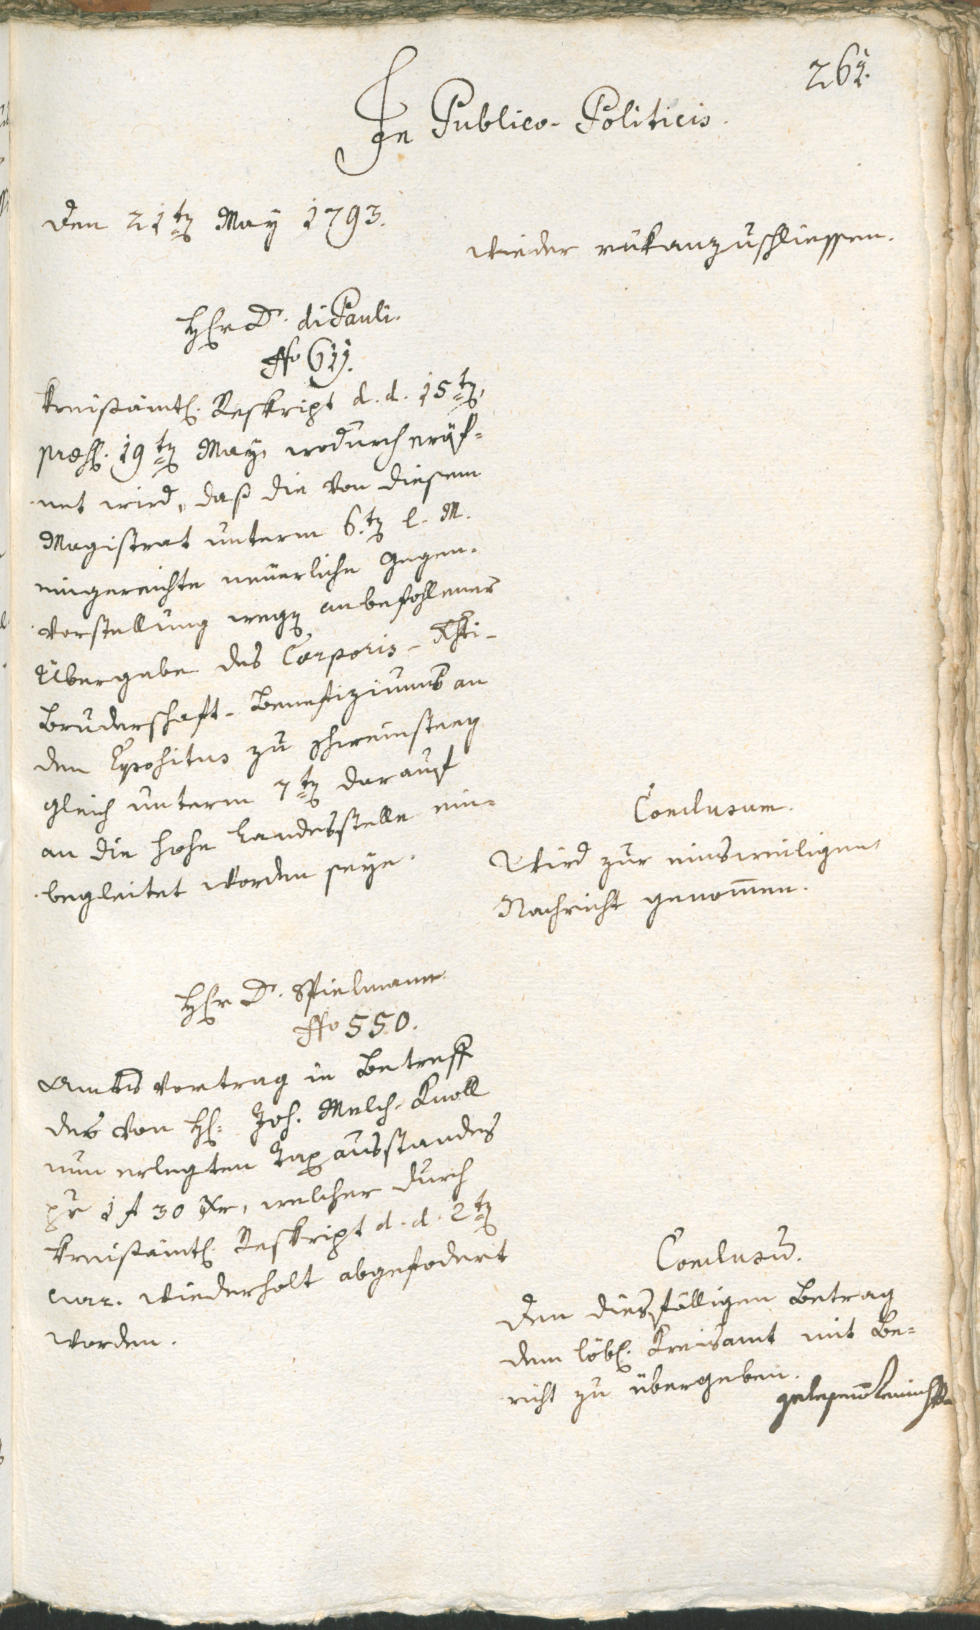 261.
In Publico-Politicis.
Den 21ten May 1793.
wieder rükanzuschliessen.
Herr Dr. di Pauli.
No 611.
Kreisämtl. Reskript d. d. 15ten,
præs. 19ten May, wodurch eröf-
net wird, daß die von diesem
Magistrat unterm 6.ten l. M.
eingereichte neuerliche Gegen-
vorstellung wegen anbefohlener
Übergabe des Corporis-Xsti-
Bruderschaft-Benefiziums an
den Expositus zu
gleich unterm 7ten darauf
an die hohe Landesstelle ein-
begleitet worden seye.
Conclusum.
Wird zur einsweiligen
Nachricht genommen.
Herr Dr. Spielmann
No 550.
Amts Vortrag in Betreff
des von H. Joh. Melch. Knoll
nun erlegten Taxausstandes
pr 1 f 30 xr, welcher durch
Kreisämtl. Reskript d. d. 2ten
curr. wiederholt abgefodert
worden.
Conclusum.
Den diesfälligen Betrag
dem löbl. Kreisamt mit Be-
richt zu übergeben.